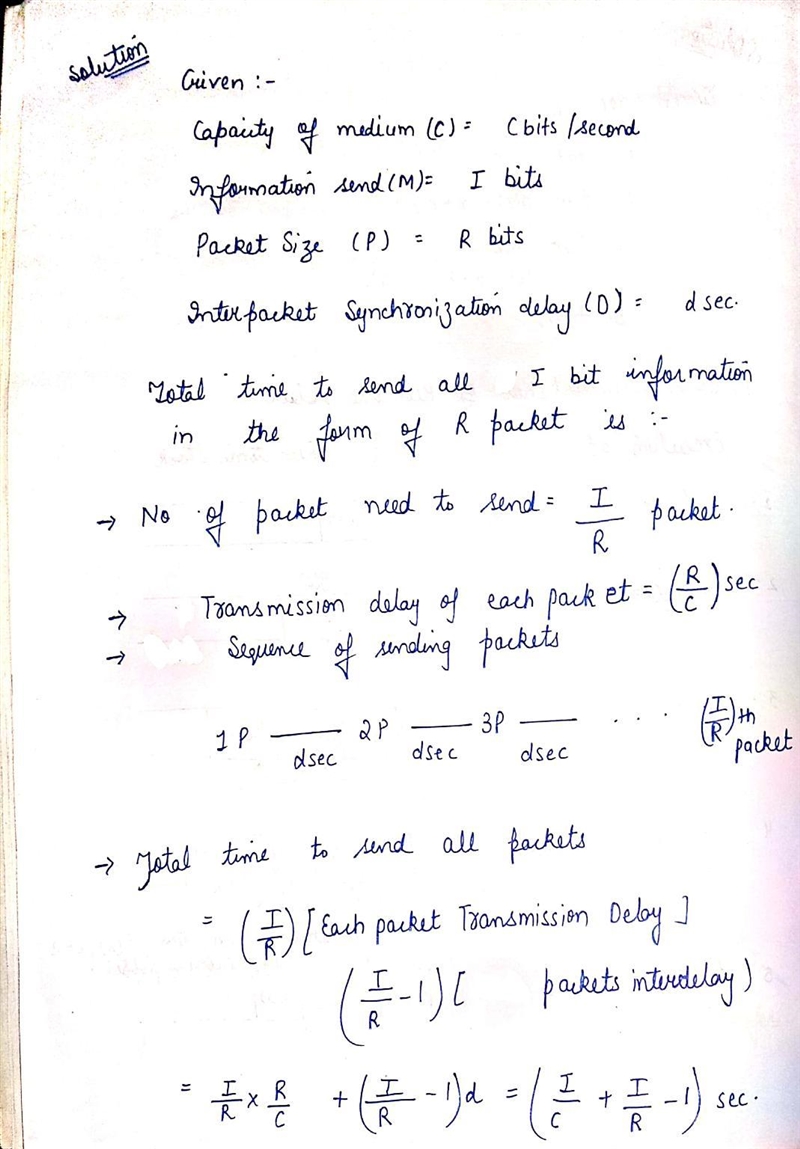 Solution
Given :-
Capacity of medium (C) = C bits / second
Information send (M) = I bits
Packet Size (P) = R bits
Interpacket Synchronization delay (D) = d sec.
Total time to send all I bit information
in the form of R packet is :-
→ No of packet need to send = I/R packet.
→ Transmission delay of each packet = (R/C) sec
→ Sequence of sending packets
1P —— 2P —— 3P —— . . . (I/R)th
dsec dsec dsec packet
→ Total time to send all packets
= (I/R) [Each packet Transmission Delay]
(I/R - 1) [ packets interdelay)
= I/R x R/C + (I/R - 1)d = (I/C + I/R - 1) sec.